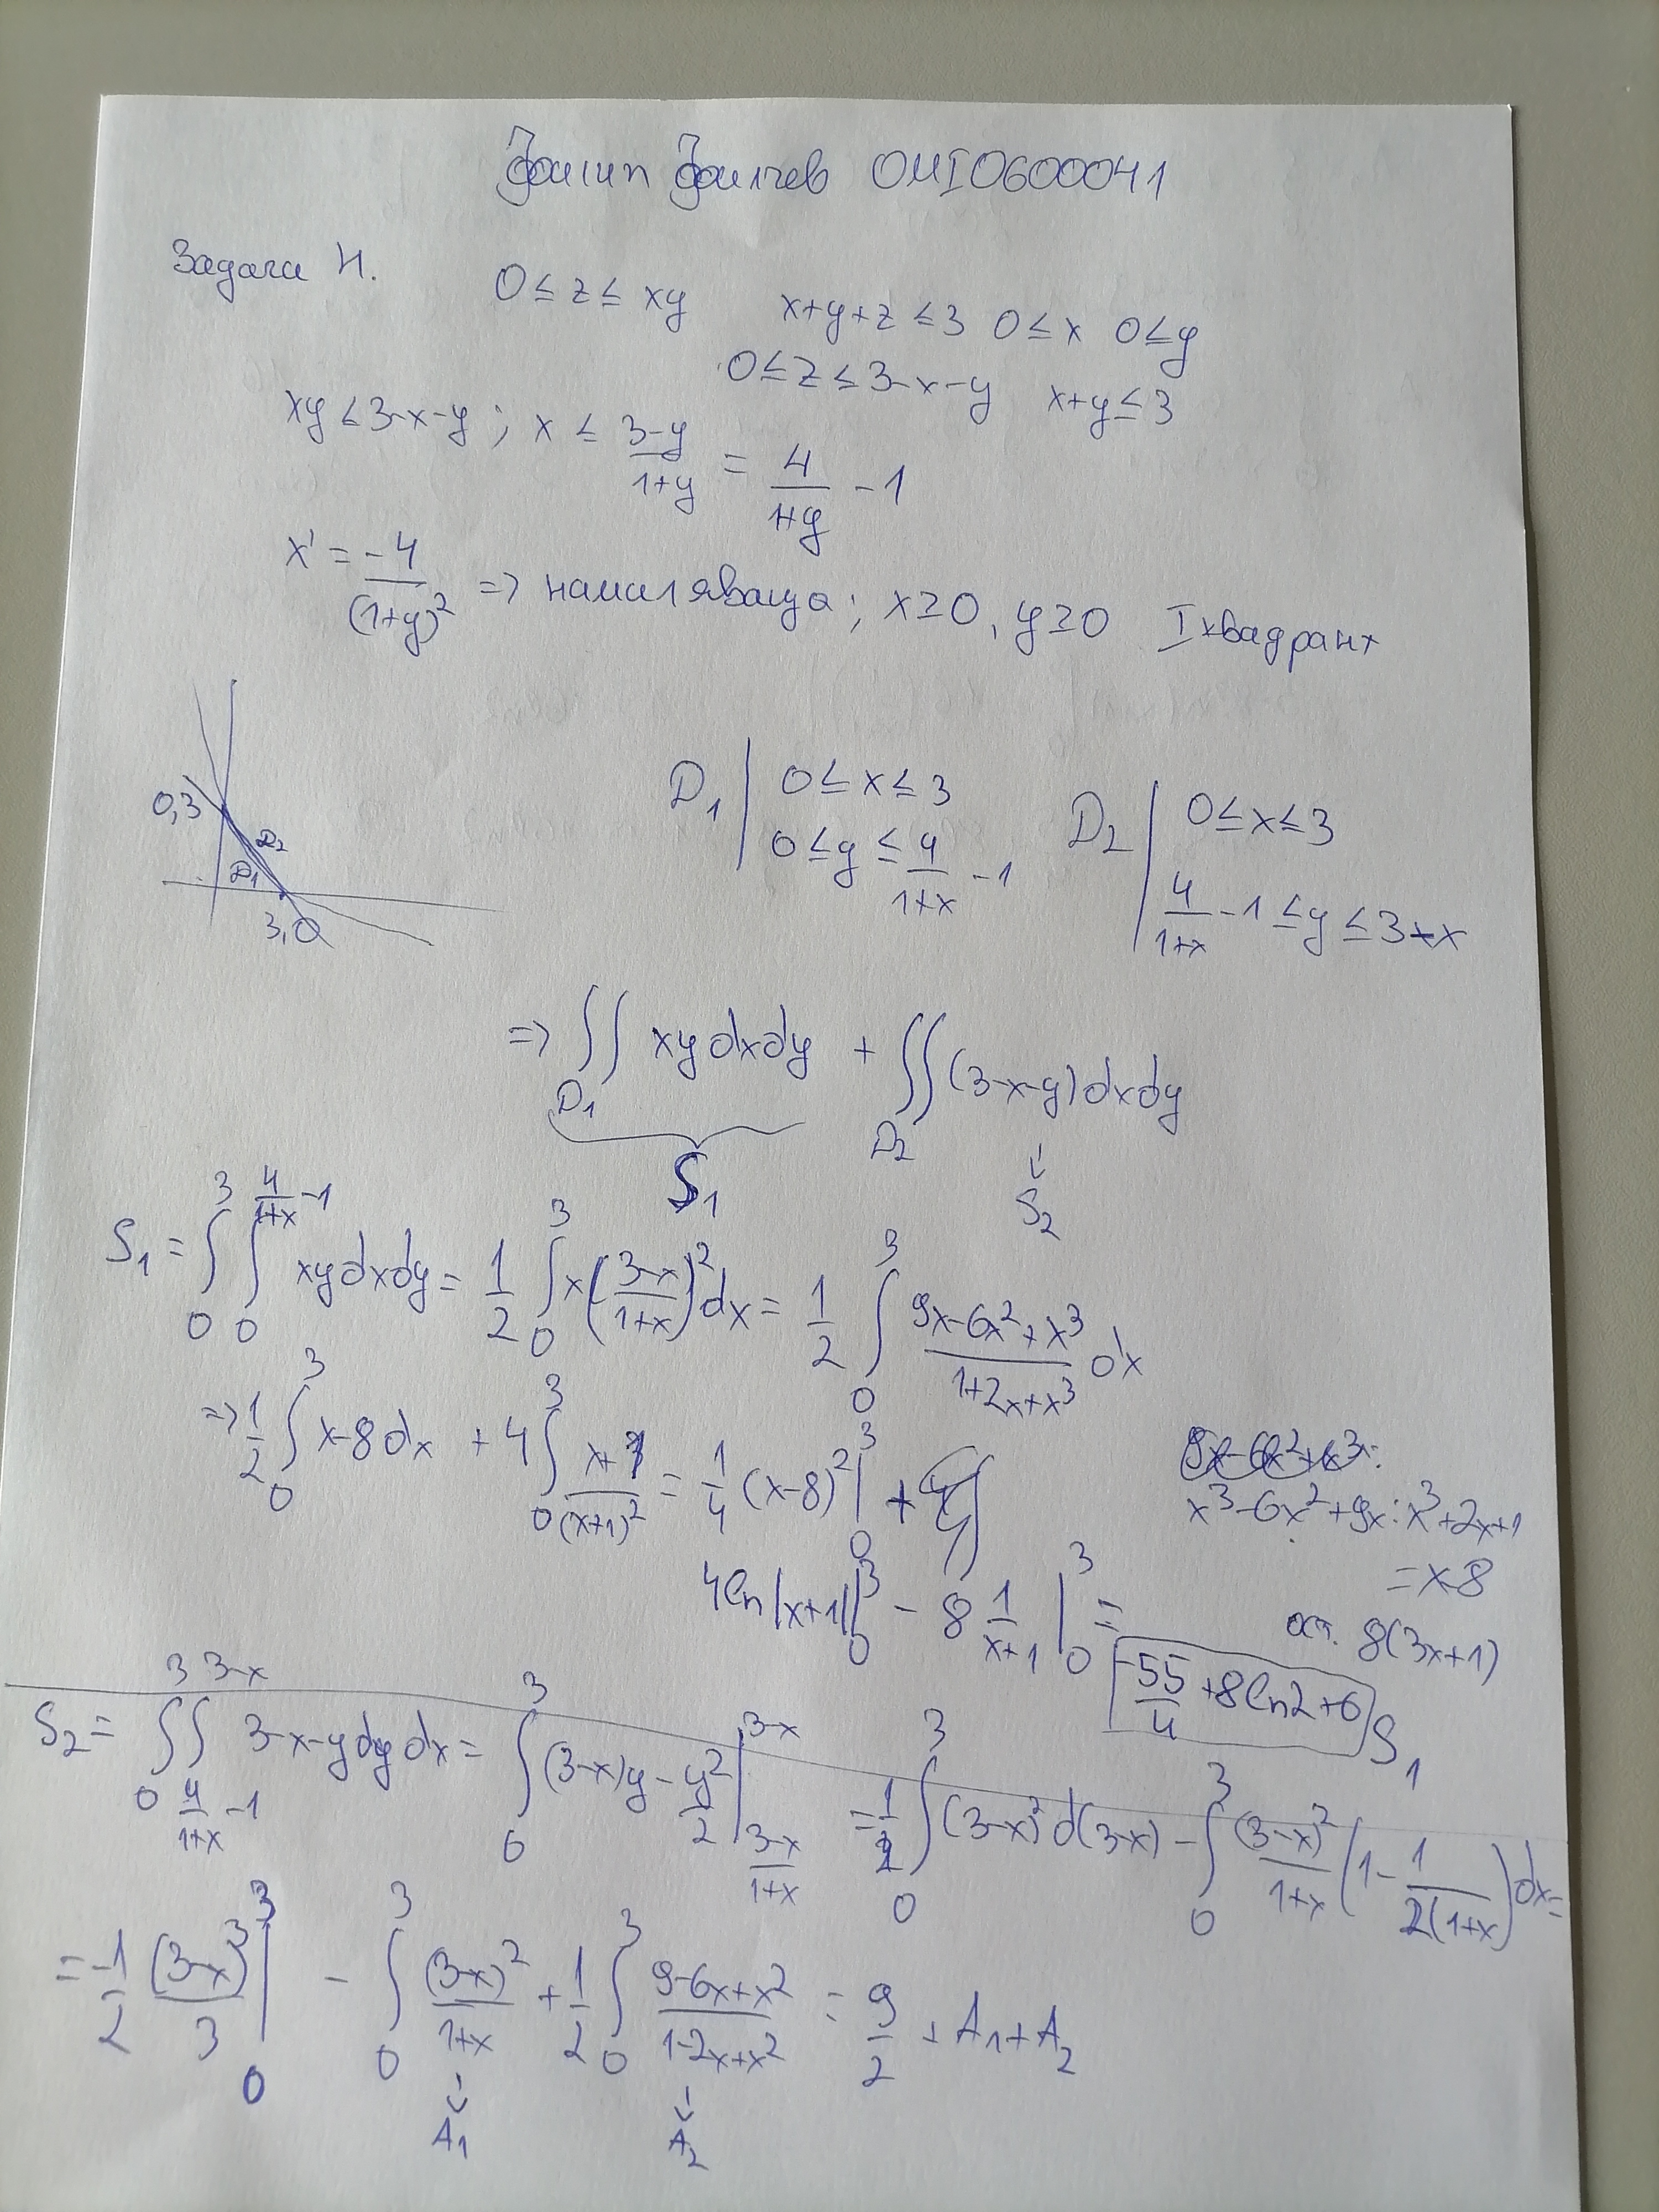 Филип Филчев 0MI0600041
Задача 4.
0 ≤ z ≤ xy x+y+z ≤ 3 0 ≤ x 0 ≤ y
0 ≤ z ≤ 3-x-y x+y ≤ 3
xy ≤ 3-x-y ; x ≤ (3-y)/(1+y) = 4/(1+y) - 1
x' = -4/(1+y)² => намаляваща ; x ≥ 0, y ≥ 0 I квадрант
0,3
D₂
D₁
3,0
D₁ | 0 ≤ x ≤ 3
0 ≤ y ≤ 4/(1+x) - 1
D₂ | 0 ≤ x ≤ 3
4/(1+x) - 1 ≤ y ≤ 3-x
=> ∬_D₁ xy dxdy + ∬_D₂ (3-x-y) dxdy
S₁
S₂
S₁ = ∫₀³ ∫₀^(4/(1+x) - 1) xy dxdy = 1/2 ∫₀³ x((3-x)/(1+x))² dx = 1/2 ∫₀³ (9x-6x²+x³)/(1+2x+x³) dx
=> 1/2 ∫₀³ x-8 dx + 4 ∫₀³ /(x+1)² = 1/4 (x-8)² |₀³ +
4ln|x+1| |₀³ - 8 1/(x+1) |₀³ =
-55/4 + 8ln2 + 6 S₁
x³-6x²+9x : x³+2x+1
= x-8
ост. 8(3x+1)
S₂ = ∫₀³ ∫_(4/(1+x) - 1)^(3-x) 3-x-y dy dx = ∫₀³ (3-x)y - y²/2 |_((3-x)/(1+x))^(3-x) = 1/2 ∫₀³ (3-x)² d(3-x) - ∫₀³ (3-x)²/(1+x) (1 - 1/(2(1+x))) dx =
= -1/2 (3-x)³/3 |₀³ - ∫₀³ (3-x)²/(1+x) + 1/2 ∫₀³ (9-6x+x²)/(1-2x+x²) = 9/2 + A₁ + A₂
A₁
A₂